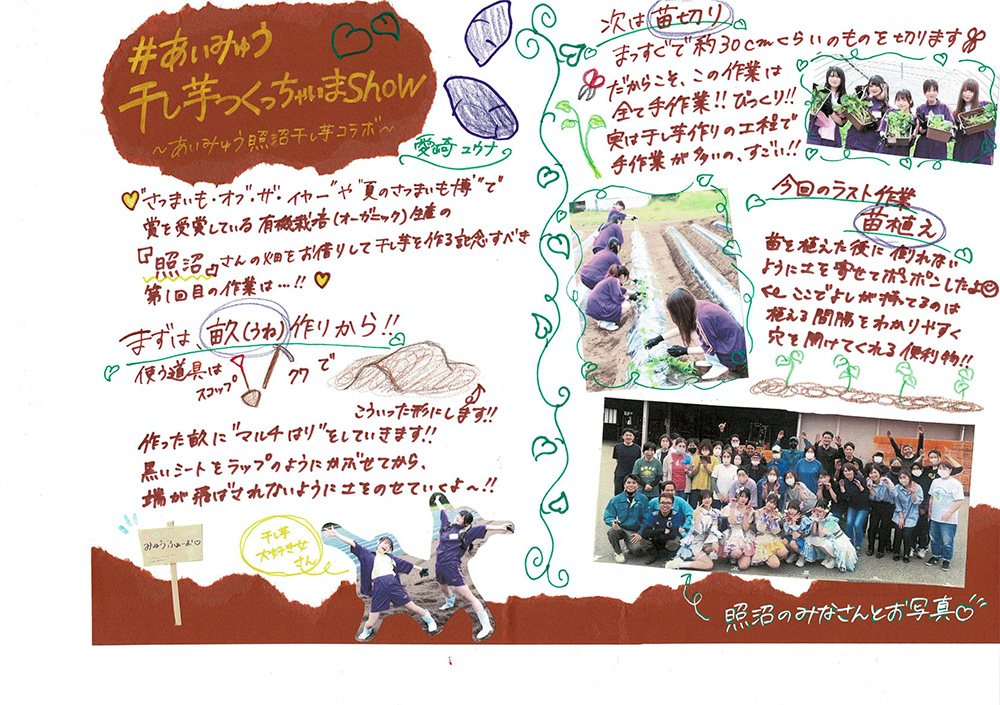 #あいみゅう
干し芋つくっちゃいまShow
～あいみゅう照沼干し芋コラボ～
愛崎ユウナ
"さつまいも・オブ・ザ・イヤー"や"夏のさつまいも博"で
賞を受賞している有機栽培(オーガニック)生産の
『照沼』さんの畑をお借りして干し芋を作る記念すべき
第1回目の作業は…!!
まずは、畝(うね)作りから!!
使う道具は
スコップ
クワで
こういった形にします!!
作った畝に"マルチはり"をしていきます!!
黒いシートをラップのようにかぶせてから、
端が飛ばされないように土をのせていくよ～!!
みゅうふぁーむ♡
干し芋
大好き女
さん
次は苗切り
まっすぐで約30cmくらいのものを切ります
だからこそ、この作業は
全て手作業!!びっくり!!
実は干し芋作りの工程で
手作業が多いの、すごい!!
今回のラスト作業
苗植え
苗を植えた後に倒れない
ように土を寄せてポンポンしたよ
ここでよしが持ってるのは
植える間隔をわかりやすく
穴を開けてくれる便利物!!
照沼のみなさんとお写真♡